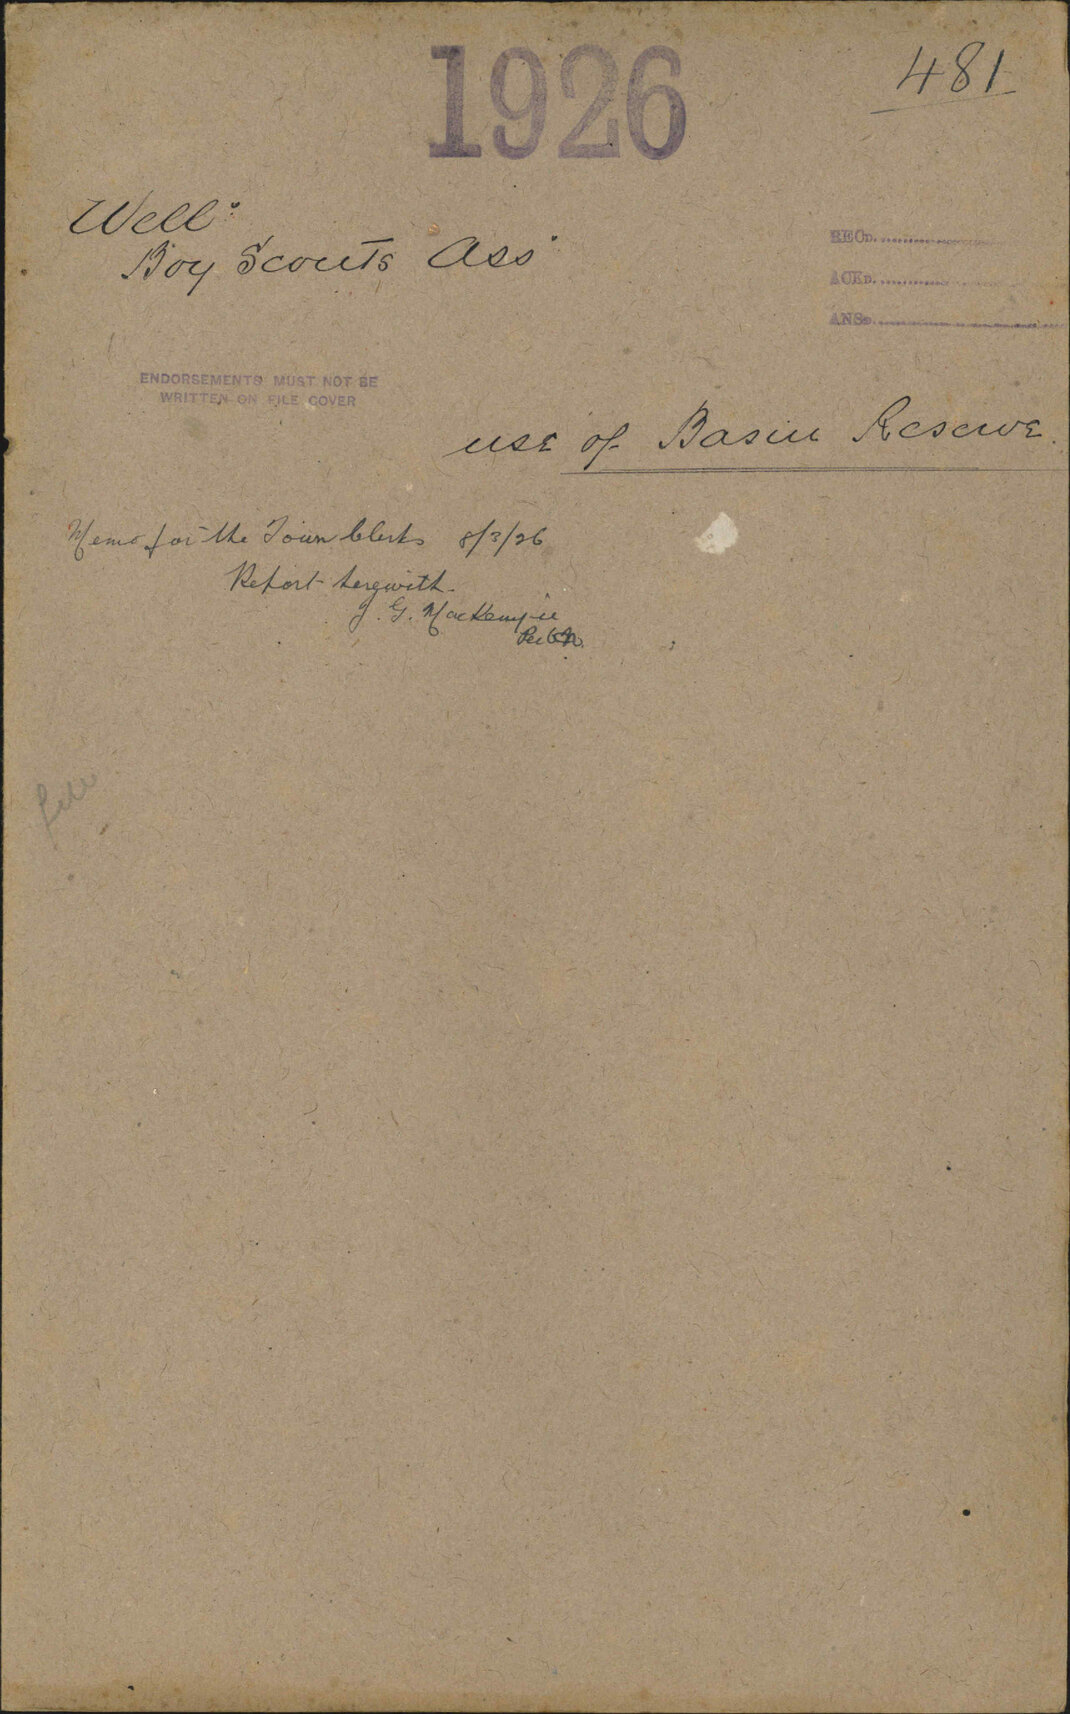 1926
481
Well:
Boy Scouts Ass
RECD.
ACKD.
ANSD.
ENDORSEMENTS MUST NOT BE
WRITTEN ON FILE COVER
use of Basin Reserve.
Memo for the Town Clerk 8/3/26
Report herewith.
J. G. MacKenzie
Per
file